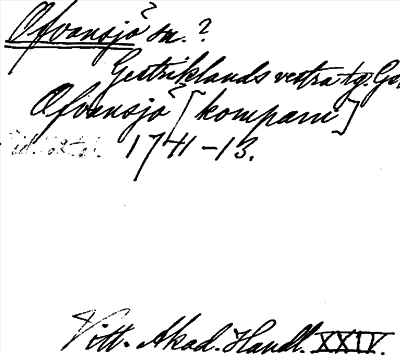 Ofvansjö? sn.?
Gestriklands vestra tg. Gs.
Ofvansjö? [kompani]
1741-13.
Vitt. Akad. Handl. XXIV.